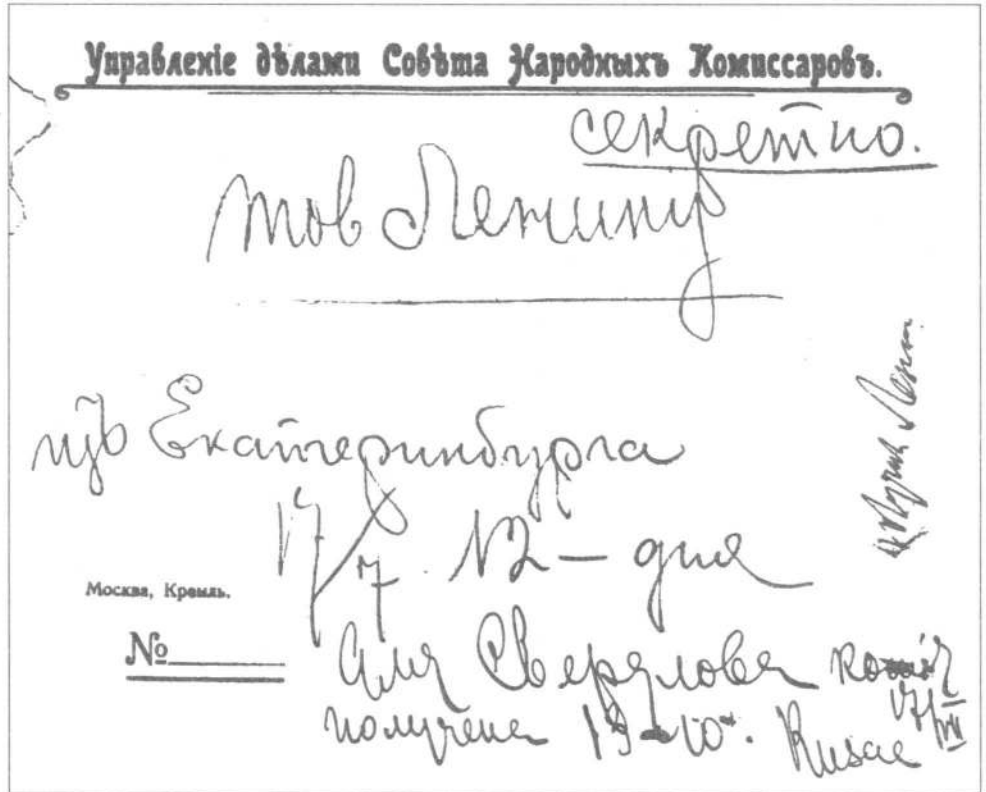 Управленіе дѣлами Совѣта Народныхъ Комиссаровъ.
секретно.
тов Ленину
изъ Екатеринбурга
17/7 12 – дня
Москва, Кремль.
№
для Свердлова копія
получена 13-10. 17/VII
Получил Ленин